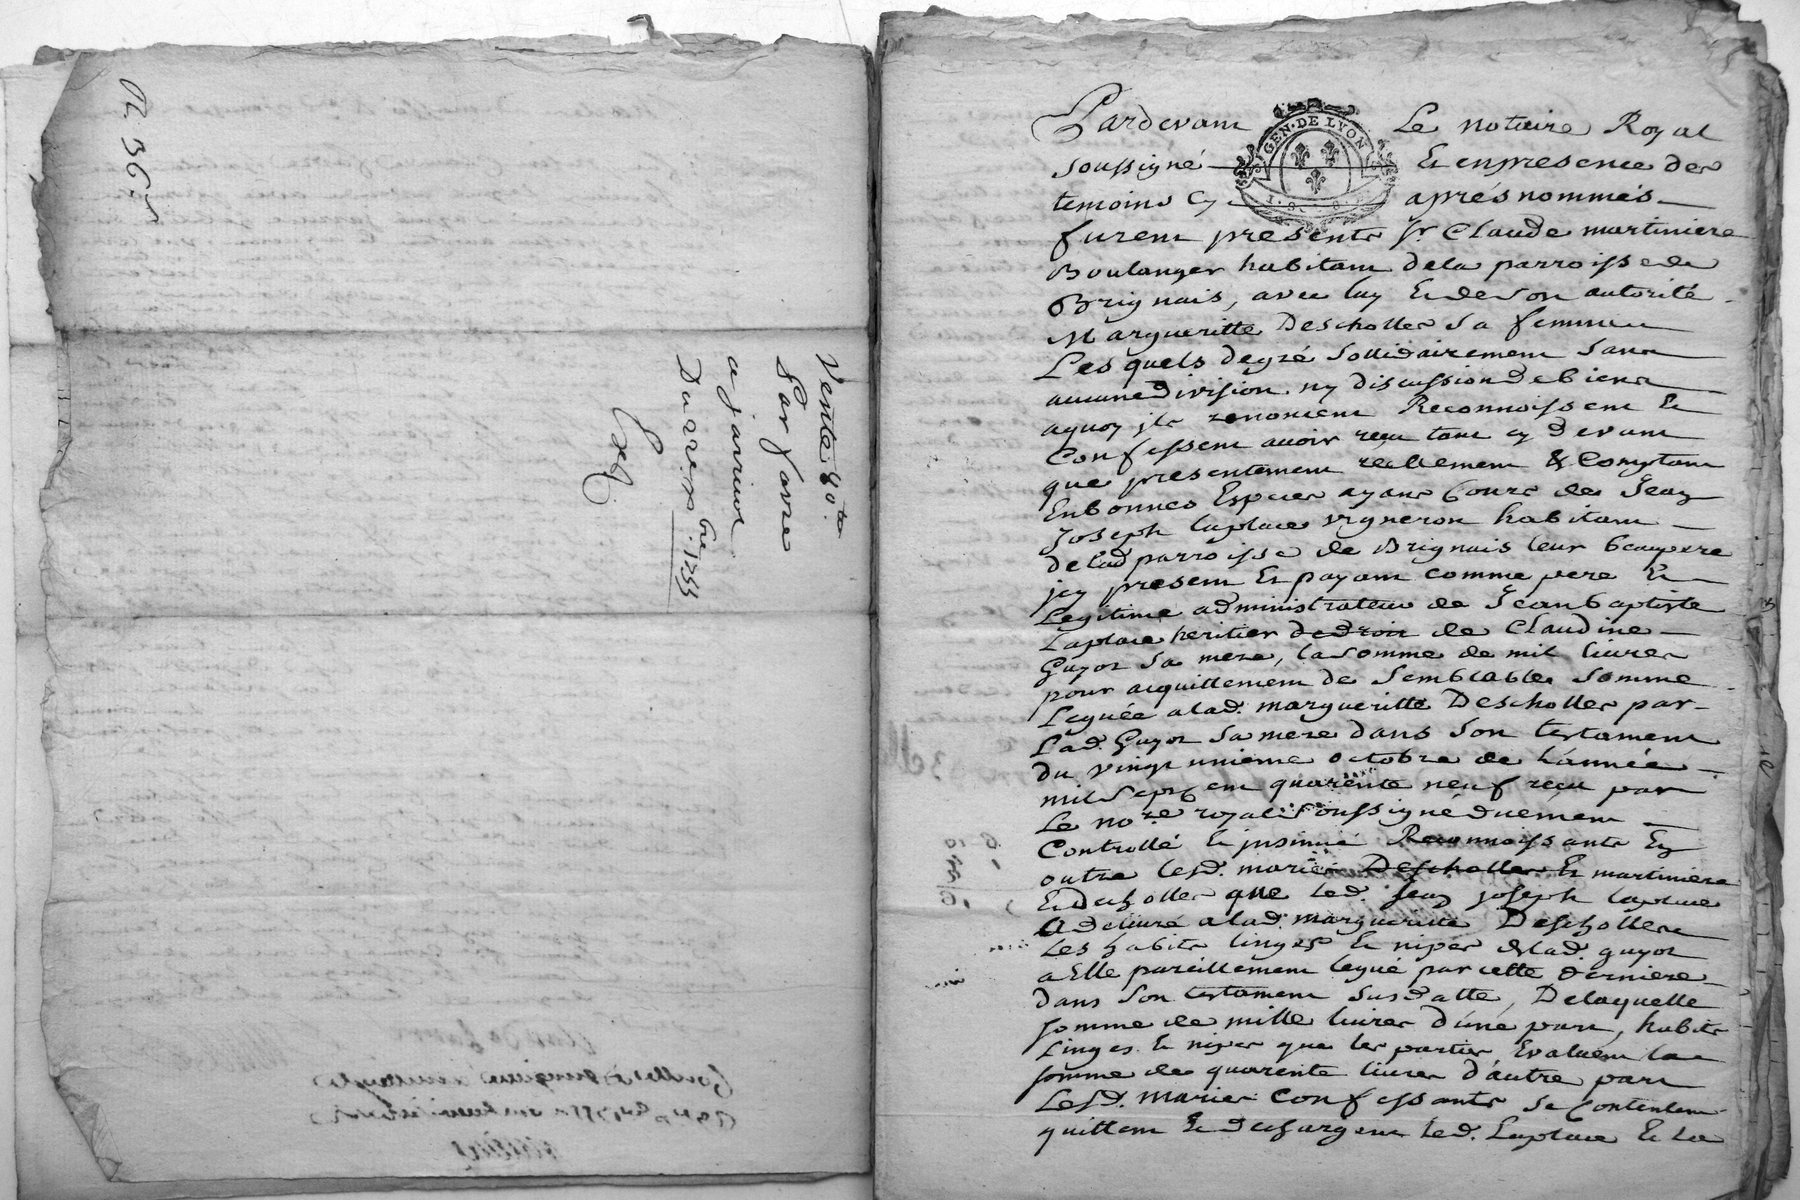 R 36 s
Vente 80.te
Par favre
a jarricot
Du xbre 1755
Exp.
GEN. DE LYON
Pardevant Le notaire Royal
soussigné Et enpresence des
temoins Cy aprés nommés
furent presents Sr. Claude martiniere
Boulanger habitant dela parroisse de
Brignais, avec luy Et de son autorité
Margueritte Descholles sa femme
Lesquels degré sollidairement sans
aucune division ny discussion de biens
aquoy ils renoncent Reconnoissent Et
Confessent avoir reçu tant cy devant
que presentement reellement & Comptant
En bonnes Especes ayans Cours de Jean
Joseph laplace vigneron habitant
de lad parroisse de Brignais leur beaupere
jcy present Et payant comme pere Et
Legitime administrateur de Jean baptiste
Laplace heritier dedroit de Claudine
Guyot sa mere, la somme de mil livres
pour acquittement de semblable somme
Leguée a lad. margueritte Descholles par
Lad. Guyot sa mere dans son testament
du vingt unieme octobre de L'année
mil sept cent quarente neuf reçu par
Le nore. royal soussigné duement
Controllé Et jnsinué Reconnoissants En
outre lesd. mariés Descholles Et martiniere
Et descholles que led. Jean joseph laplace
a delivré a lad. margueritte Descholles
Les habits linges Et nipes de lad. guyot
a Elle pareillement legué par cette derniere
dans son testament susdatte, De laquelle
somme de mille livres d'une part, habits
Linges Et nipes que les parties Evaluent la
somme de quarente livres d'autre part
Lesd. mariés Confessants se Contentent
quittent Et dechargent led. Laplace Et Le